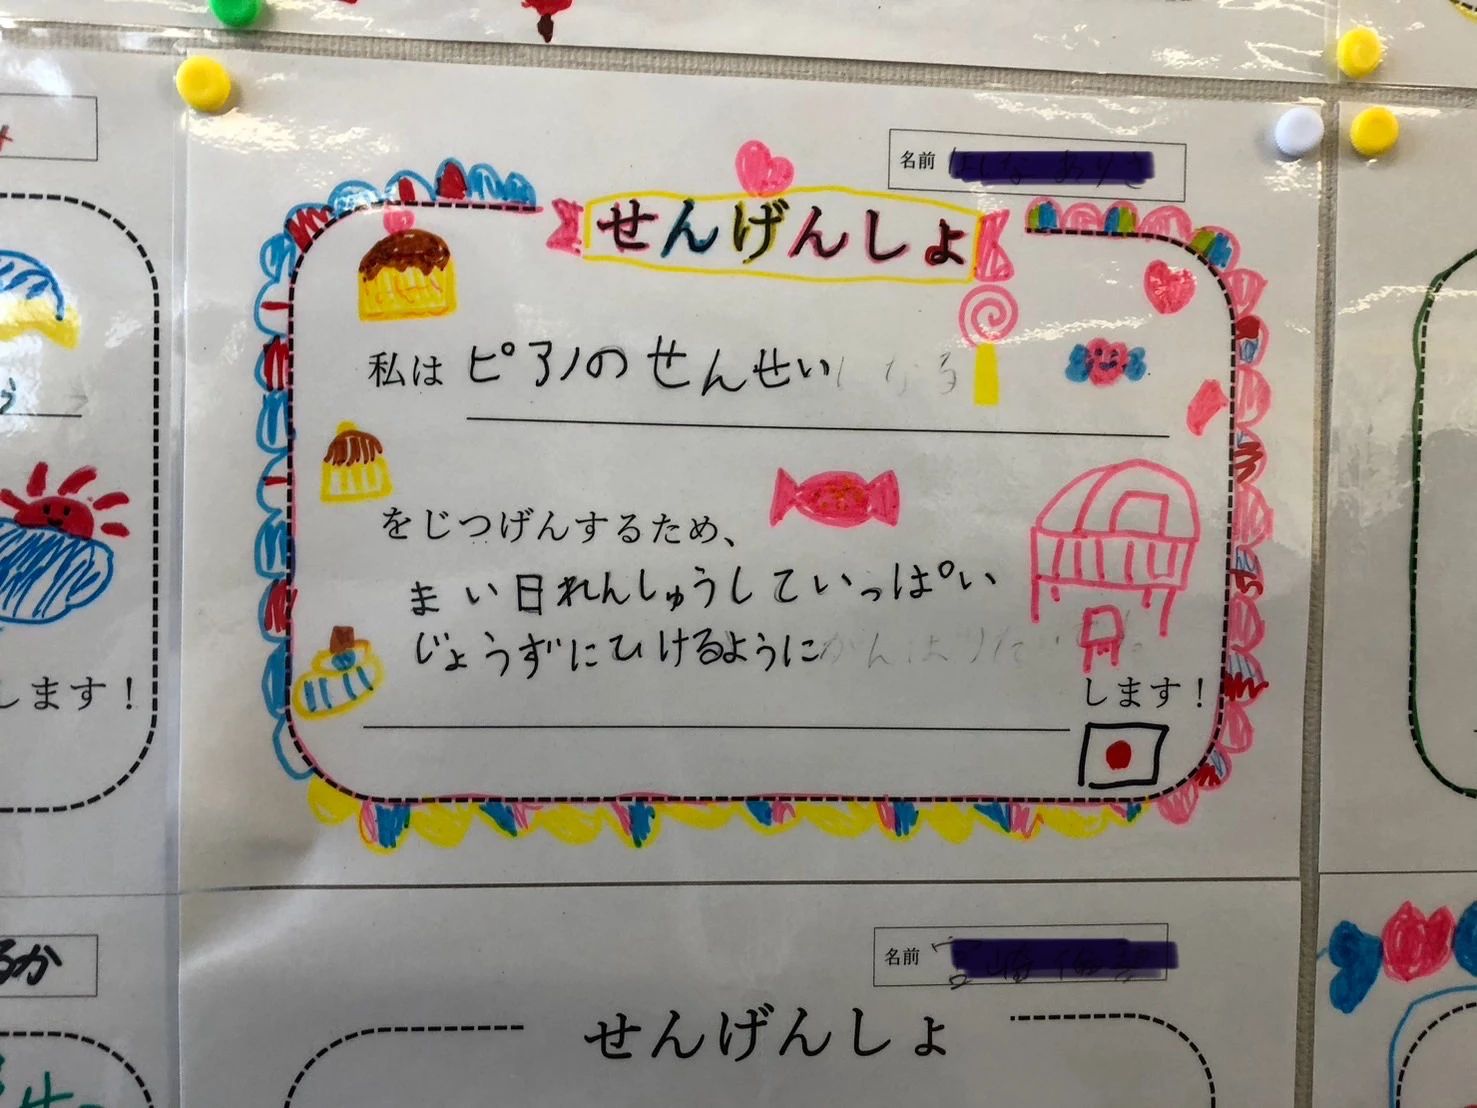 名前
せんげんしょ
私は ピアノの せんせい
をじつげんするため、
まい日れんしゅうしていっぱい
じょうずにひけるように
します！
します！
るか
名前
せんげんしょ